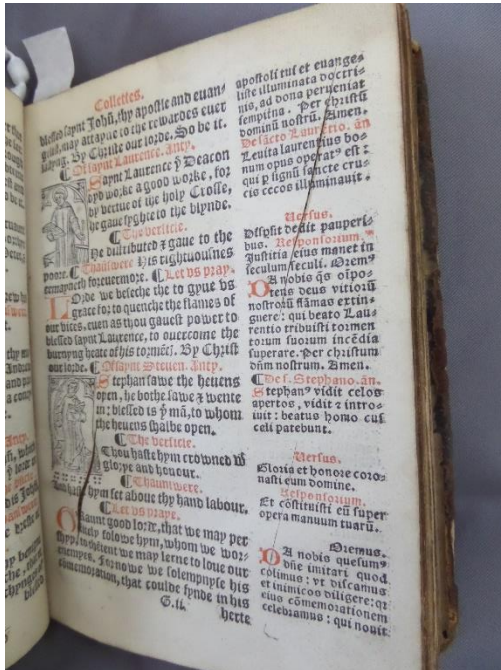 Collettes.
blessed saynt Johñ, thy apostle and euan-
gelist, may attayne to the rewardes euer
lastyng. By Christe our lorde. So be it.
¶ Of saynt Laurence. Anty.
Saynt Laurence ẏ Deacon
dyd worke a good worke, for
by vertue of the holy Crosse,
he gaue syghte to the blynde.
¶ The versicle.
He distributed ⁊ gaue to the
poore. ¶ Thanswere His rightuousnes
remayneth foreuermore. ¶ Let vs pray.
LOrde we beseche the to gyue vs
grace for to quenche the flames of
our vices, euen as thou gauest power to
blessed saynt Laurence, to ouercome the
burnyng heate of his tormēts. By Christ
our lorde. ¶ Of saynt Steuen. Anty.
Stephan sawe the heuens
open, he bothe sawe ⁊ wente
in: blessed is ẏ mā, to whom
the heuens shalbe open.
¶ The versicle.
Thou haste hym crowned w
glorye and honour.
¶ Thanswere.
And haste hym set aboue thy hand labour.
¶ Let vs praye.
Graunt good lorde, that we may per
folowe hym, whom we wor-
shyp, to thentent we may lerne to loue our
enemyes. For nowe we solempnyse his
commemoration, that coulde fynde in his
G.ii. herte
apostoli tui et euange-
liste illuminata doctri-
nis, ad dona perueniat
sempitna. Per christū
dominū nostrū. Amen.
De sācto Laurētio. ān
Leuita laurentius bo-
num opus operatꝰ est:
qui ꝑ signū sancte cru-
cis cecos illuminauit.
Versus.
Dispsit dedit pauperi-
bus. Responsorium.
Justitia eius manet in
seculum seculi. Oremꝰ
DA nobis qs oīpo-
tens deus vitiorū
nostrorū flāmas extin-
guere: qui beato Lau-
rentio tribuisti tormen
torum suorum incēdia
superare. Per christum
dn̄m nostrum. Amen.
¶ De s. Stephano. ān.
Stephanꝰ vidit celos
apertos, vidit ⁊ intro-
iuit: beatus homo cui
celi patebunt.
Versus.
Gloria et honore coro-
nasti eum domine.
Responsorium.
Et cōstituisti eū super
opera manuum tuarū.
Oremus.
DA nobis quesumꝰ
dn̄e imitari quod
colimus: vt discamus
et inimicos diligere: qr
eius cōmemorationem
celebramus: qui nouit